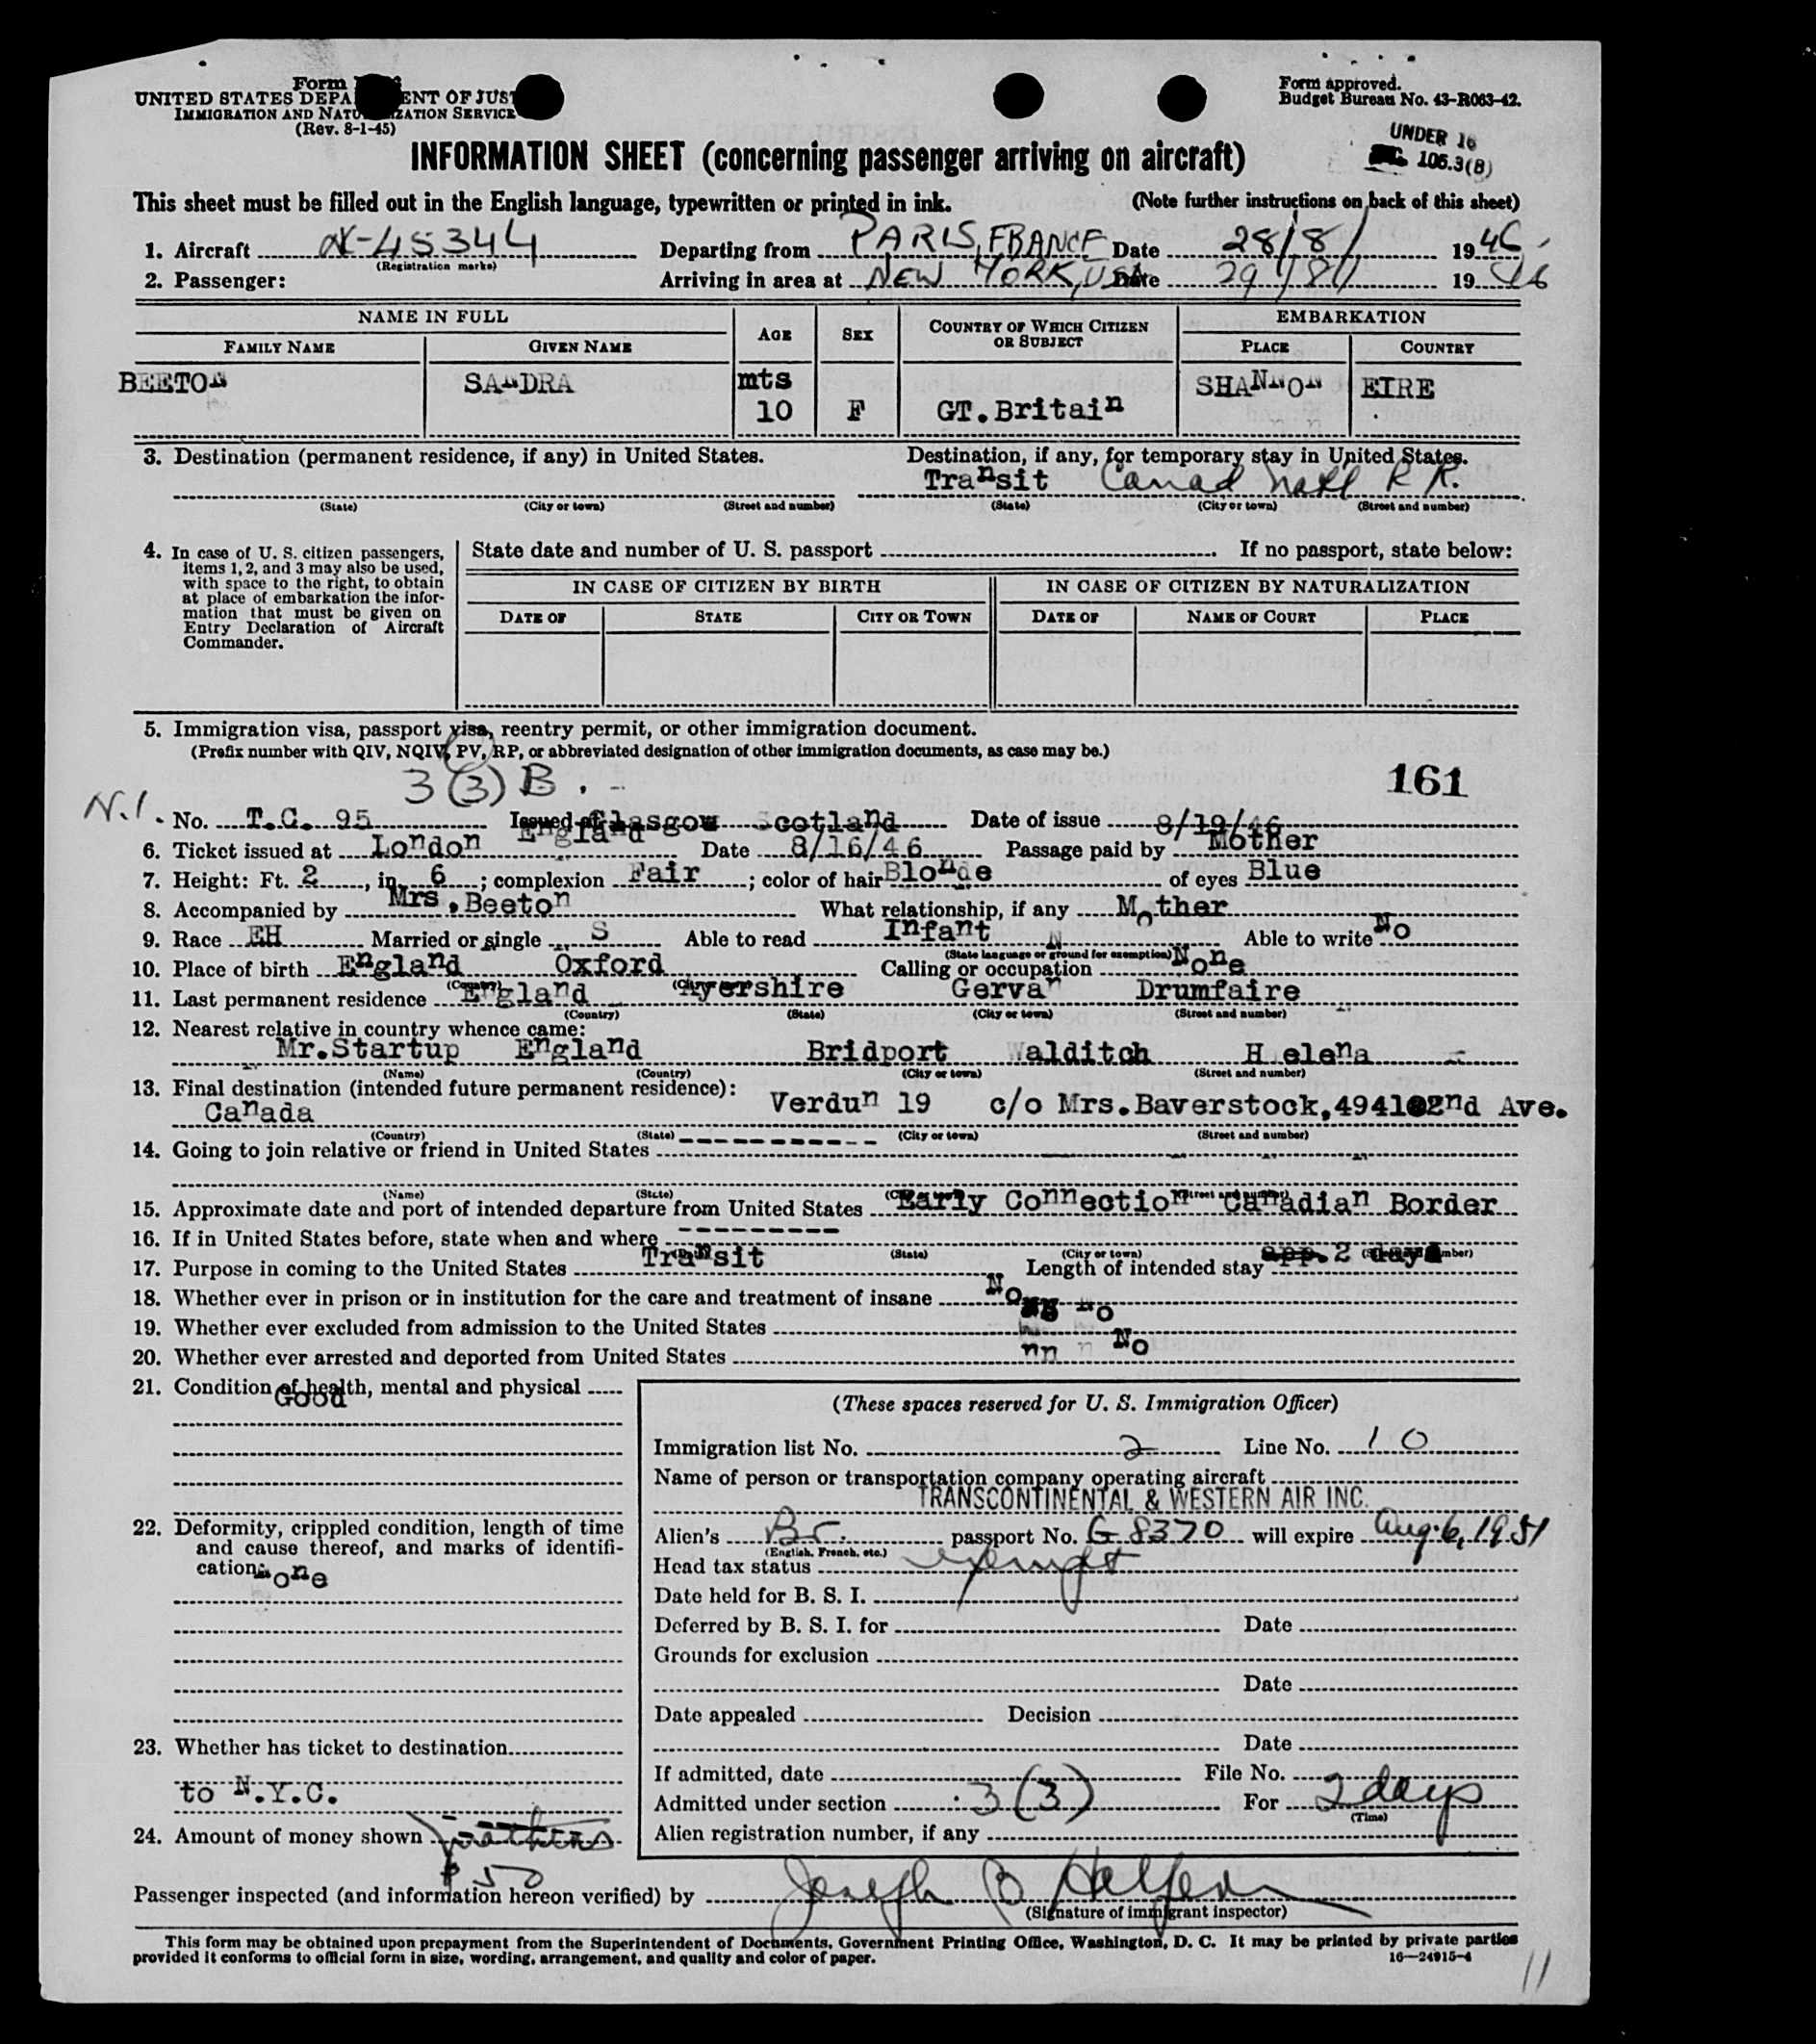 Form
UNITED STATES DEPA ENT OF JUST
IMMIGRATION AND NATU IZATION SERVICE
(Rev. 8-1-45)
Form approved.
Budget Bureau No. 43-R063-42.
UNDER 16
106.3(B)
INFORMATION SHEET (concerning passenger arriving on aircraft)
This sheet must be filled out in the English language, typewritten or printed in ink. (Note further instructions on back of this sheet)
1. Aircraft -45344 Departing from PARIS, FRANCE Date 28/8/ 1946
(Registration marks)
2. Passenger: Arriving in area at NEW YORK, USA Date 29/8/ 1946
NAME IN FULL AGE SEX COUNTRY OF WHICH CITIZEN OR SUBJECT EMBARKATION
FAMILY NAME GIVEN NAME PLACE COUNTRY
BEETON SANDRA mts 10 F GT.Britain SHANNON EIRE
3. Destination (permanent residence, if any) in United States. Destination, if any, for temporary stay in United States.
Transit Canad Natl R R.
(State) (City or town) (Street and number) (State) (City or town) (Street and number)
4. In case of U. S. citizen passengers, items 1, 2, and 3 may also be used, with space to the right, to obtain at place of embarkation the information that must be given on Entry Declaration of Aircraft Commander.
State date and number of U. S. passport . If no passport, state below:
IN CASE OF CITIZEN BY BIRTH IN CASE OF CITIZEN BY NATURALIZATION
DATE OF STATE CITY OR TOWN DATE OF NAME OF COURT PLACE
5. Immigration visa, passport visa, reentry permit, or other immigration document.
(Prefix number with QIV, NQIV, PV, RP, or abbreviated designation of other immigration documents, as case may be.)
3(3) B. 161
N.I. No. T.C. 95 Issued at Glasgow Scotland Date of issue 8/19/46
England
6. Ticket issued at London Date 8/16/46 Passage paid by Mother
7. Height: Ft. 2, in. 6; complexion Fair; color of hair Blonde of eyes Blue
8. Accompanied by Mrs.Beeton What relationship, if any Mother
9. Race EH Married or single S Able to read Infant N Able to write No
(State language or ground for exemption)
10. Place of birth England Oxford Calling or occupation None
(Country)
11. Last permanent residence England Ayershire Gervan Drumfaire
(Country) (State) (City or town) (Street and number)
12. Nearest relative in country whence came:
Mr.Startup England Bridport Walditch Helena
(Name) (Country) (City or town) (Street and number)
13. Final destination (intended future permanent residence):
Canada Verdun 19 c/o Mrs.Baverstock,4941 2nd Ave.
(Country) (State) (City or town) (Street and number)
14. Going to join relative or friend in United States
(Name) (State) (Street and number)
15. Approximate date and port of intended departure from United States Early Connection Canadian Border
16. If in United States before, state when and where
(State) (City or town)
17. Purpose in coming to the United States Transit Length of intended stay app.2 days
18. Whether ever in prison or in institution for the care and treatment of insane No
19. Whether ever excluded from admission to the United States No
20. Whether ever arrested and deported from United States No
21. Condition of health, mental and physical
Good
22. Deformity, crippled condition, length of time and cause thereof, and marks of identification:
None
23. Whether has ticket to destination
to N.Y.C.
24. Amount of money shown
$50
(These spaces reserved for U. S. Immigration Officer)
Immigration list No. 2 Line No. 10
Name of person or transportation company operating aircraft
TRANSCONTINENTAL & WESTERN AIR INC.
Alien's Br. passport No. G 8370 will expire Aug. 6, 1951
(English, French, etc.)
Head tax status exempt
Date held for B. S. I.
Deferred by B. S. I. for Date
Grounds for exclusion
Date
Date appealed Decision
Date
If admitted, date File No.
Admitted under section 3(3) For 2 days
(Time)
Alien registration number, if any
Passenger inspected (and information hereon verified) by Joseph B Halfern
(Signature of immigrant inspector)
This form may be obtained upon prepayment from the Superintendent of Documents, Government Printing Office, Washington, D. C. It may be printed by private parties
provided it conforms to official form in size, wording, arrangement, and quality and color of paper. 16—24915-4
11